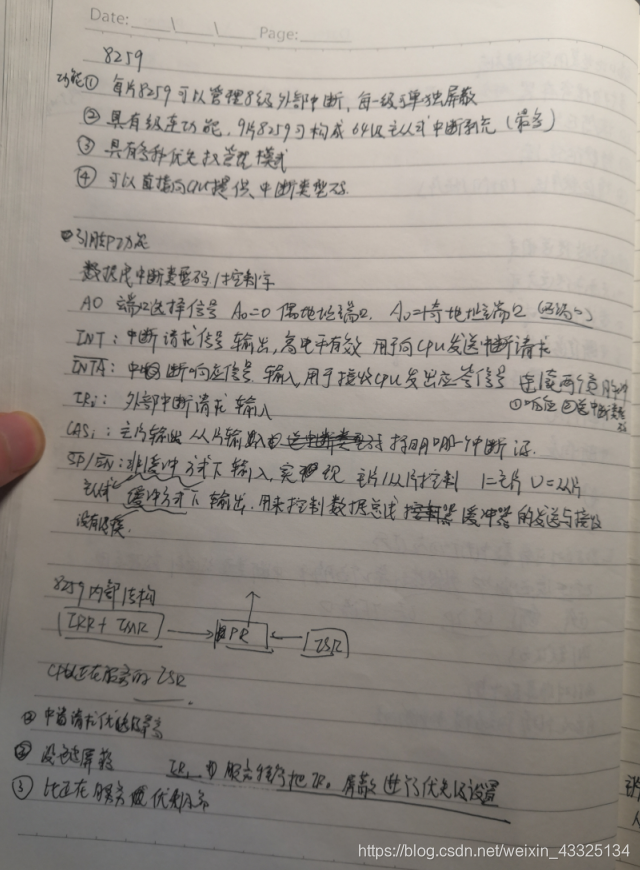 Date: Page:
8259
功能① 每片8259可以管理8级外部中断，每一级可单独屏蔽
② 具有级连功能，9片8259可构成64级主从式中断系统（最多）
③ 具有多种优先权管理模式
④ 可以直接向CPU提供中断类型码
引脚功能
数据 中断类型码/控制字
A0 端口选择信号 A0=0 偶地址端口. A0=1奇地址端口
INT：中断请求信号 输出，高电平有效 用于向CPU发送中断请求
INTA：中断响应信号 输入，用于接收CPU发出应答信号 连续两个负脉冲
①响应 ②送中断类型码
IRi：外部中断请求 输入
CASi：主片输出 从片输入 指明哪个中断源.
SP/EN：非缓冲方式下 输入，实现 主片/从片控制 1=主片 0=从片
缓冲方式下 输出. 用来控制数据总线 缓冲器的发送与接收
没有级换.
8259内部结构
IRR + IMR PR ISR
CPU正在服务的 ISR
① 申请请求优先级最高
② 没有被屏蔽 服务程序把IR 屏蔽 进行优先级设置
③ 比正在服务 优先
https://blog.csdn.net/weixin_43325134